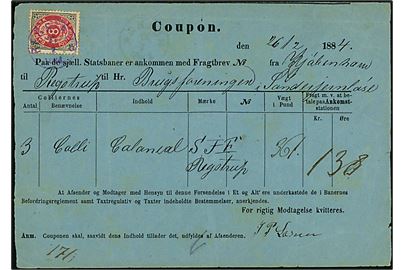 Coupon.
8
den 26/2 1884.
Paa de sjell. Statsbaner er ankommen med Fragtbrev № fra Kjøbenhavn
til Regstrup til Hr. Brugsforeningen, Sønderjernløse
Colliernes
Antal Benævnelse Indhold Mærke № Vægt i Pund Fragt m. v. at betale paa Ankomststationen
Kr. Øre
3 Colli Colonial S J F
Regstrup 138
At Afsender og Modtager med Hensyn til denne Forsendelse i Et og Alt' ere underkastede de i Banernes
Befordringsreglement samt Taxtregulativ og Taxter indeholdte Bestemmelser, anerkjendes.
For rigtig Modtagelse kvitteres.
Anm. Couponen skal, saavidt dens Indhold tillader det, udfyldes af Afsenderen.